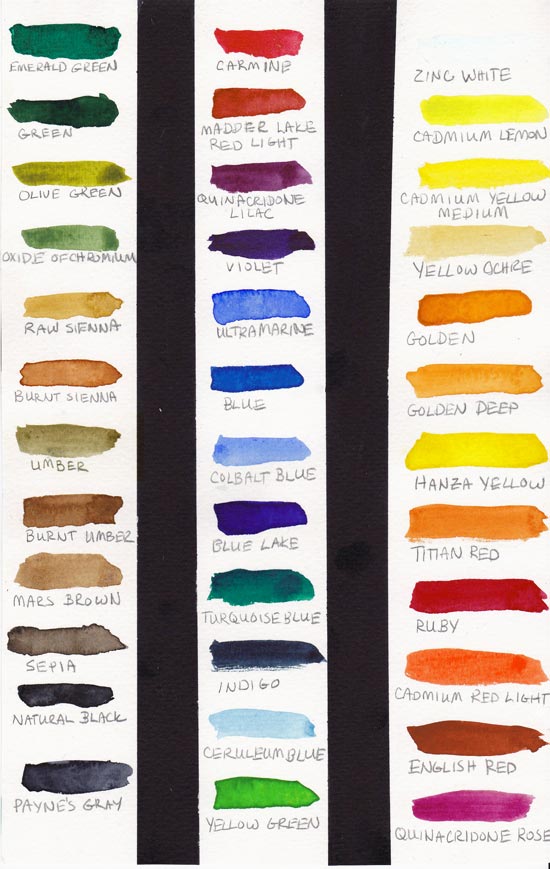 EMERALD GREEN
GREEN
OLIVE GREEN
OXIDE OF CHROMIUM
RAW SIENNA
BURNT SIENNA
UMBER
BURNT UMBER
MARS BROWN
SEPIA
NATURAL BLACK
PAYNE'S GRAY
CARMINE
MADDER LAKE
RED LIGHT
QUINACRIDONE
LILAC
VIOLET
ULTRAMARINE
BLUE
COLBALT BLUE
BLUE LAKE
TURQUOISE BLUE
INDIGO
CERULEUM BLUE
YELLOW GREEN
ZINC WHITE
CADMIUM LEMON
CADMIUM YELLOW
MEDIUM
YELLOW OCHRE
GOLDEN
GOLDEN DEEP
HANZA YELLOW
TITIAN RED
RUBY
CADMIUM RED LIGHT
ENGLISH RED
QUINACRIDONE ROSE